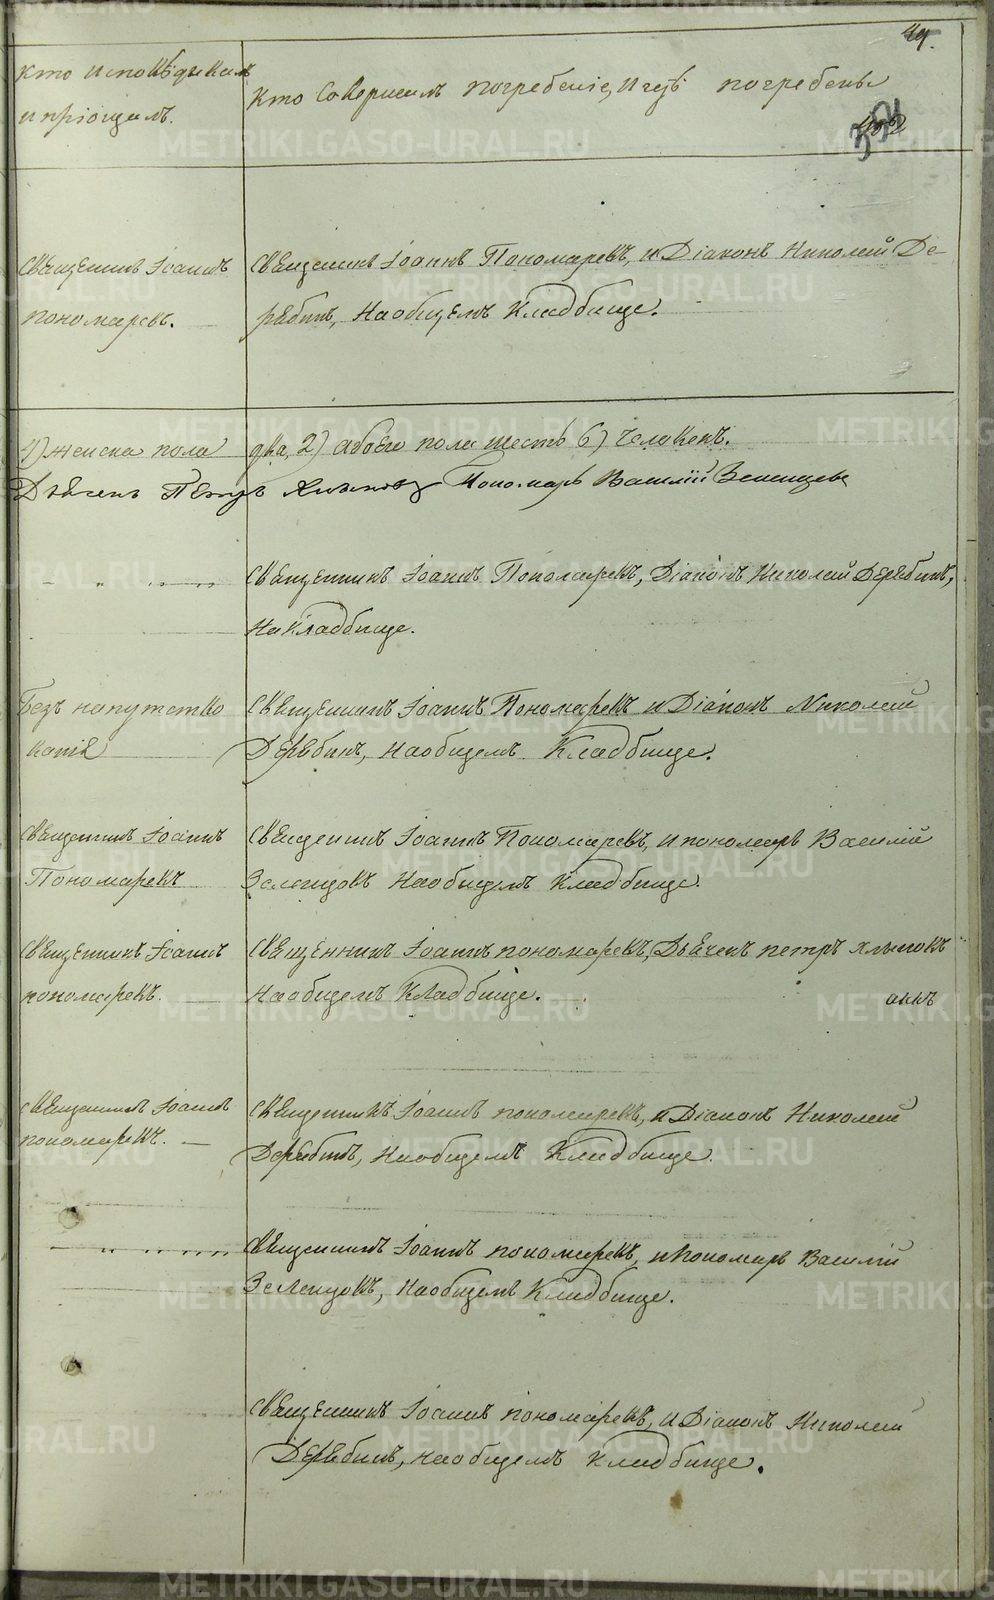 49.
Кто исповѣдывалъ
и пріощалъ.
Кто Совершилъ погребеніе, и гдѣ погребены
Священникъ Іоаннъ
пономаревъ.
Священникъ Іоаннъ Пономаревъ, и Діаконъ Николай Де-
рябинъ, На общемъ Кладбище.
женска пола два, 2) обоего пола шесть 6) Человекъ.
Дьячекъ Петръ Хлыновъ Пономарь Василій Зеленцовъ
Священникъ Іоаннъ Пономаревъ, Діаконъ Николай Дерябинъ,
На Кладбище.
Безъ напутство
ванія
Священникъ Іоаннъ Пономаревъ и Діаконъ Николай
Дерябинъ, На общемъ Кладбище.
Священникъ Іоаннъ
Пономаревъ
Священникъ Іоаннъ Пономаревъ, и пономарь Василій
Зеленцовъ На общемъ Кладбище.
Священникъ Іоаннъ
пономаревъ.
Священникъ Іоаннъ пономаревъ, Дьячекъ петръ Хлыновъ
На общемъ Кладбище.
Священникъ Іоаннъ
пономаревъ.
Священникъ Іоаннъ пономаревъ, и Діаконъ Николай
Дерябинъ, На общемъ Кладбище.
Священникъ Іоаннъ пономаревъ, и Пономарь Василій
Зеленцовъ, На общемъ Кладбище.
Священникъ Іоаннъ пономаревъ, и Діаконъ Николай
Дерябинъ, на общемъ Кладбище.
METRIKI.GASO-URAL.RU